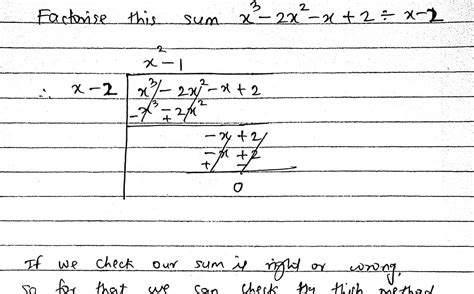 Factorise this sum x³ - 2x² - x + 2 ÷ x-2
x² - 1
∴ x - 2 x³ - 2x² - x + 2
-x³ - 2x²
+
- x + 2
- x + 2
+ -
0
If we check our sum is right or wrong,
so for that we can check by this method